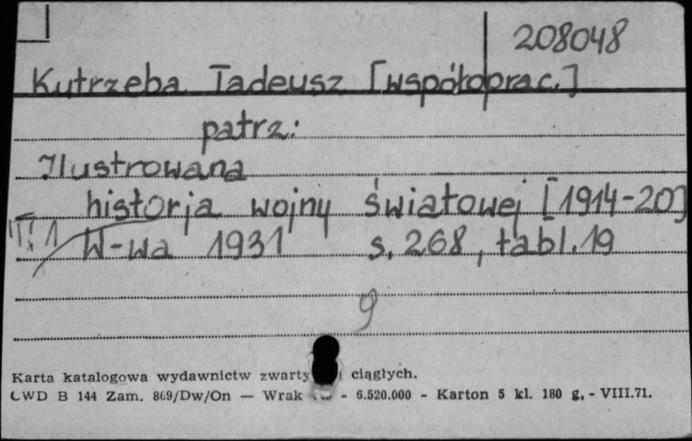 208048
Kutrzeba Tadeusz [współoprac.]
patrz:
Ilustrowana
historja wojny światowej [1914-20]
III 1 W-wa 1931 s. 268, tabl. 19
9
Karta katalogowa wydawnictw zwarty i ciągłych.
CWD B 144 Zam. 869/Dw/On — Wrak - 6.520.000 - Karton 5 kl. 180 g. - VIII.71.